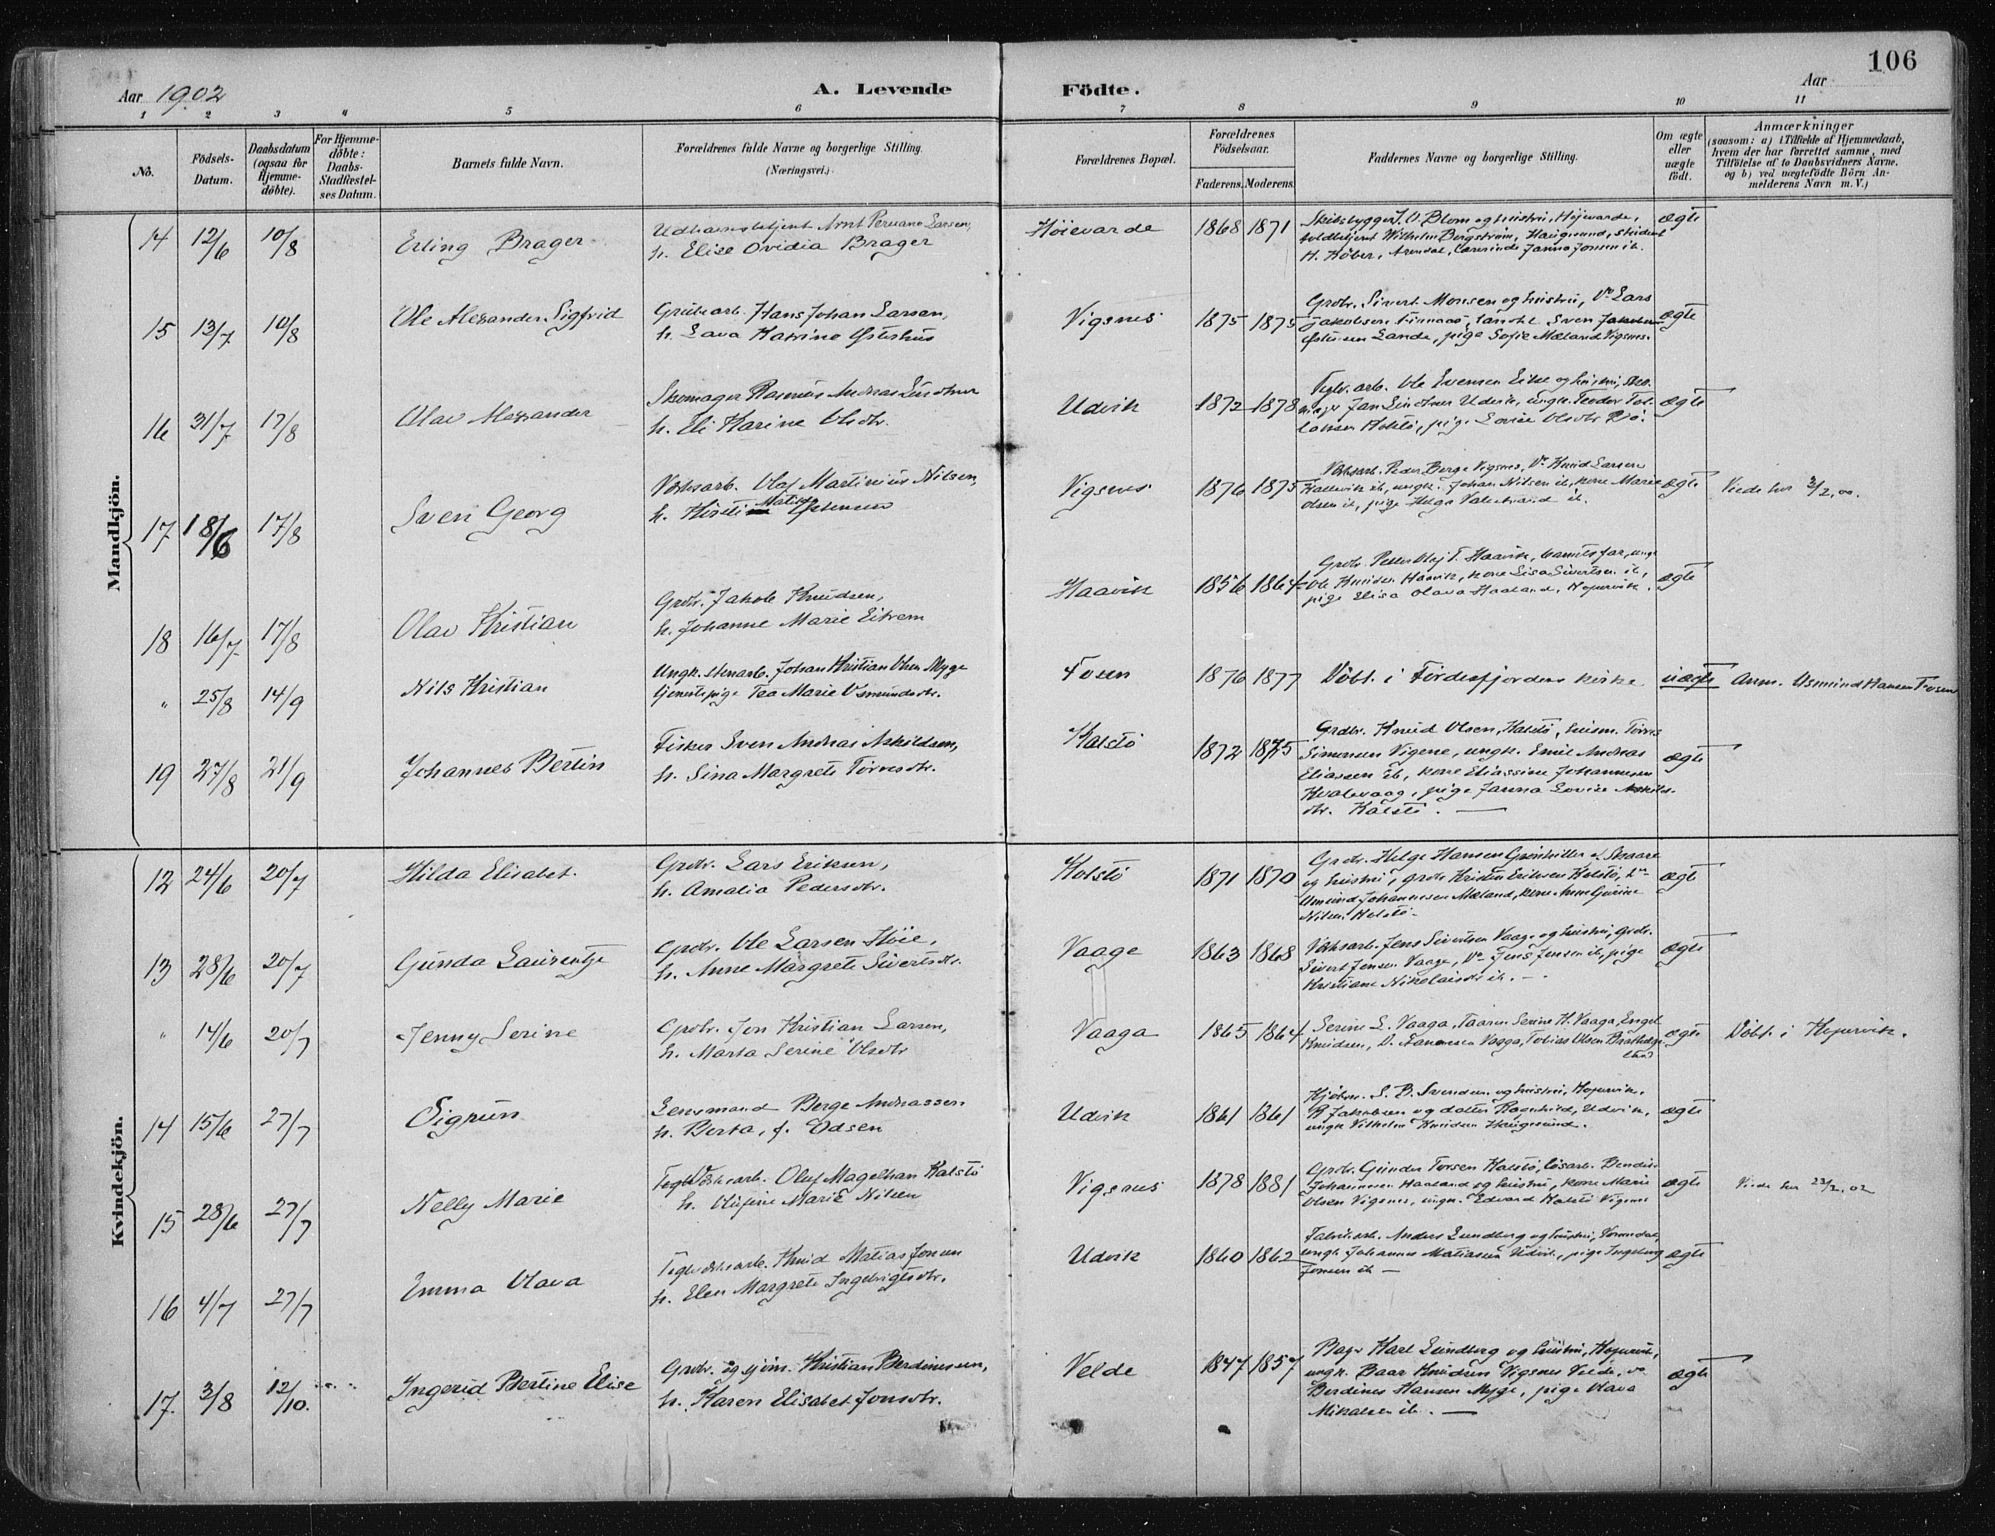 106
Aar 1902
A. Levende Födte.
Aar
1 2 3 4 5 6 7 8 9 10 11
No.
Födsels-Datum.
Daabsdatum (ogsaa for Hjemme-döbte).
For Hjemme-döbte: Daabs-Stadfæstel-ses Datum.
Barnets fulde Navn.
Forældrenes fulde Navne og borgerlige Stilling.
(Næringsvei.)
Forældrenes Bopæl.
Forældrenes Födselsaar.
Faderens. Moderens.
Faddernes Navne og borgerlige Stilling.
Om ægte eller uægte födt.
Anmærkninger
(saasom: a) i Tilfælde af Hjemmedaab,
hvem der har forrettet samme, med
Tilföielse af to Daabsvidners Navne.
og b) ved uægtefödte Börn An-
melderens Navn m. V.)
Mandkjön.
14 12/6 10/8 Erling Brager
Arnt Peruano Larsen,
h. Elise Ovidia Brager
Høievarde 1868 1871
Skibsbygger J. O. Blom og hustru, Højevarde,
toldbetjent Wilhelm Bergstrøm, Haugesund, student
H. Höber, Arendal, Lærerinde Janna Jensen ib.
ægte
15 13/7 10/8 Ole Alexander Sigfrid
Grubearb. Hans Johan Larsen,
h. Lava Katrine Østehus
Vigsnes 1875 1875
Grdbr. Sivert Monsen og hustru, Do Lars
Jakobsen Sven
Lande, pige Sofie Mæland Vigsnes.
ægte
16 31/7 17/8 Olav Alexander
Skomager Rasmus Andreas Lindtner
h. Eli Karine Olsdtr.
Udvik 1872 1878
Teglv.arb. Ole Evensen Eike og hustru,
Jan Lindtner Udvik, ungk. Teodor
pige Lovise Olsdtr.
ægte
17 18/6 17/8 Sven Georg
Værksarb. Olaf Martinius Nilsen,
h. Kirsti Matis
Vigsnes 1876 1875
Værksarb. Peder Berge Vigsnes, Do Knud Larsen
ib, ungk. Johan Nilsen ib, kone Marie
Olsen ib, pige Helga ib.
ægte
Viede her 3/2.00.
18 16/7 17/8 Olav Kristian
Grdbr. Jakob Knudsen,
h. Johanne Marie Eitrem
Haavik 1856 1864
Grdbr. Peder Olaj T. Haavik, barnets far, ungk
Ole Knudsen Haavik, kone Lisa Sivertsen ib,
pige Elisa Olava Haaland, Kopervik.
ægte
" 25/8 14/9 Nils Kristian
Ungk. stenarb. Johan Kristian Olsen Myge
tjenestepige Tea Marie Osmundsdtr.
Fosen 1876 1877
Døbt i Førdesfjordens kirke
uægte
Anm. Osmund Hansen Fosen
19 27/8 21/9 Johannes Bertin
Fisker Sven Andreas Askildsen,
h. Sina Margrete Torresdtr.
Kalstø 1872 1875
Grdbr. Knud Olsen, Kalstø, husm. Torris
Simonsen Vigene, ungk. Emil Andreas
Eliassen ib, kone Eliassine Johannesen
Kvalevaag, pige Janna Lovise Askilds-
dtr. Kalstø.
ægte
Kvindekjön.
12 24/6 20/7 Hilda Elisabet.
Grdbr. Lars Eriksen,
h. Amalia Pedersdtr.
Kalstø 1871 1870
Grdbr. Helge Hansen af Skaare
og hustru, grdbr Kristen Eriksen Kalstø,
Osmund Johannesen Mæland, kone Anne Gurine
Nilsen Kalstø.
ægte
13 28/6 20/7 Gunda Laurentse
Grdbr. Ole Larsen Høie,
h. Anne Margrete Sivertsdtr.
Vaage 1863 1868
Værksarb. Jens Sivertsen Vaage og hustru, grdbr.
Sivert Jensen Vaage, Do Jens Jensen ib, pige
Kristiane Nikolaisdtr ib.
ægte
" 14/6 20/7 Jenny Serine
Grdbr. Jon Kristian Larsen,
h. Marta Serine Olsdtr
Vaaga 1865 1864
Serine L. Vaaga, Taaren Serine H. Vaaga, Engel
Knudsen, Vaaga, Tobias Olsen
ægte
Døbt i Kopervik.
14 15/6 27/7 Sigrun
Lensmand Berge Andreassen
h. Berta, f. Odsen
Udvik 1861 1861
Kjøbm. S. B. Svendsen og hustru, Kopervik,
B. Jakobsen og datter Ragnhild, Udvik,
ungk. Vilhelm Knudsen Haugesund.
ægte
15 28/6 27/7 Nelly Marie
Teglværksarb. Oluf Magelhan Kalstø
h. Olufine Marie Nilsen
Vigsnes 1878 1881
Grdbr. Gunder Torsen Kalstø, løsarb. Bendix
Johannesen Haaland og hustru, kone Marie
Olsen Vigsnes, ungk. Edvard Kalstø Vigsnes
ægte
Viede her 23/2.02
16 4/7 27/7 Emma Olava
Teglværksarb. Knud Matias Jonsen
h. Elen Margrete Ingebrigtsdtr.
Udvik 1860 1862
Fabrikarb. Anders Lundberg og hustru,
ungk. Johannes Matiasen Udvik, pige Ingeborg
Jonsen ib
ægte
17. 3/8 12/10. Ingerid Bertine Elise
Grdbr. og sjøm. Kristian Berdinessen,
h. Karen Elisabet Jonsdtr.
Velde 1847 1857
Bager Karl Lundberg og hustru, Kopervik,
ungk. Baar Knudsen Vigsnes Velde, do
Berdines Hansen Myge, pige Olava
Mikalsen ib.
ægte